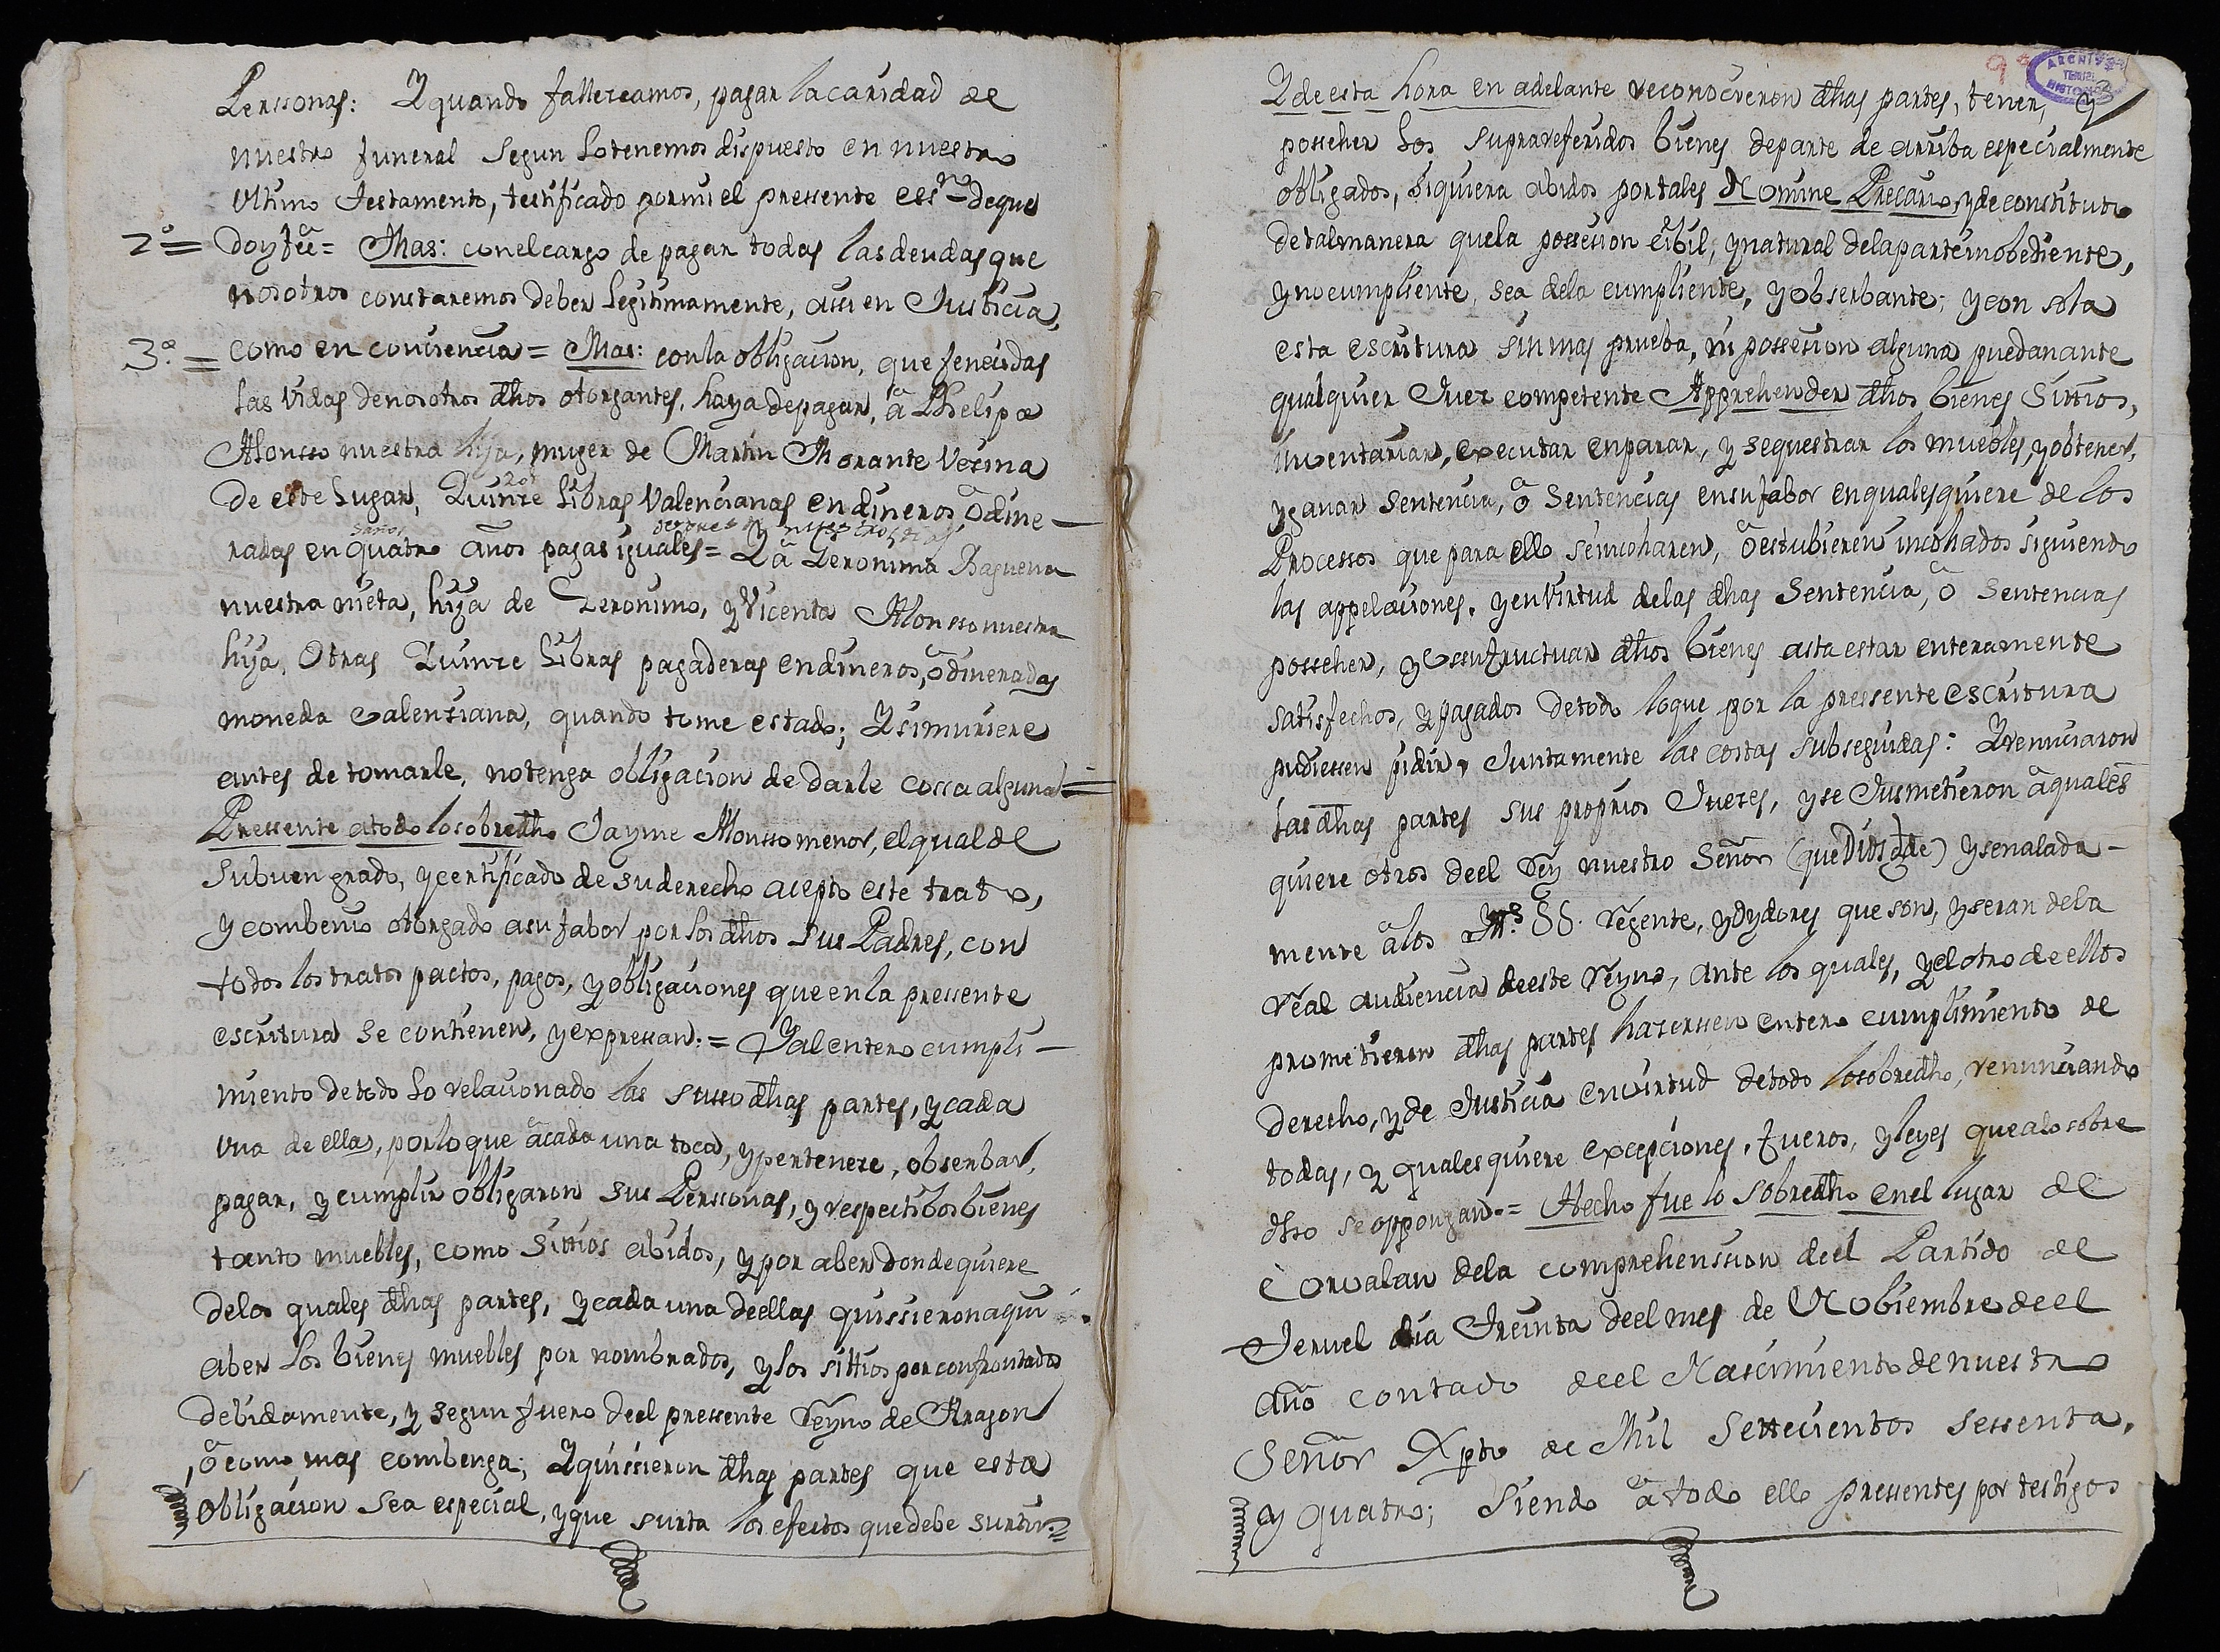 Perssonas: Y quando fallezcamos, pagar la caridad de
nuestro funeral segun lo tenemos dispuesto en nuestro
ultimo testamento, testificado por mi el pressente essno. de que
2º = doy feè = Mas: con el cargo de pagar todas las deudas que
nosotros constaremos deber legitimamente, assi en Justicia,
3º = como en conciencia = Mas: con la obligacion, que fenecidas
las vidas de nosotros dhos otorgantes, haya de pagar, â Phelipa
Alonsso nuestra hija, muger de Martin Morante vezina
de este lugar, Quinze libras valencianas en dineros, ô dine-
radas en quatro años pagas iguales = Y â Geronima Baguena
nuestra nieta, hija de Geronimo, y Vicenta Alonsso nuestra
hija, Otras Quinze libras pagaderas en dineros, ô dineradas
moneda valenziana, quando tome estado; Y si muriere
antes de tomarle, no tenga obligacion de darle cossa alguna =
Pressente a todo lo sobredho Jayme Alonsso menor, el qual de
su buen grado, y certificado de su derecho acepto este trato,
y combenio otorgado a su fabor por los dhos sus Padres, con
todos los tratos pactos, pagos, y obligaciones que en la pressente
escritura se contienen, y expressan: = Y al entero cumpli-
miento de todo lo relacionado las susso dhas partes, y cada
una de ellas, por lo que â cada una toca, y pertenece, obserbar,
pagar, y cumplir obligaron sus Perssonas, y respectibos bienes
tanto muebles, como sittios abidos, y por aber donde quiere
de los quales dhas partes, y cada una de ellas quissieron aqui
aber los bienes muebles por nombrados, y los sittios por confrontados
debidamente, y segun fuero deel pressente Reyno de Aragon
ô como mas combenga; Y quissieron dhas partes que esta
obligacion sea especial, y que surta los efectos que debe surtir =
Y de esta hora en adelante reconocieron dhas partes, tener, y
posseher los suprareferidos bienes de parte de arriba especialmente
obligados, siquiera abidos por tales Nomine Precario, y de constituto
de tal manera que la possesion cibil, y natural de la parte inobediente,
y no cumpliente, sea de la cumpliente, y obserbante; y con sola
esta escritura sin mas prueba, ni possesion alguna puedan ante
qualquier Juez competente Apprehender dhos bienes sittios,
inventariar, executar enparar, y sequestrar los muebles, y obtener,
y ganar sentencia, ô sentencias en su fabor en qualesquiere de los
Processos que para ello se incoharen, ô estubieren incohados siguiendo
las appelaciones, y en virtud de las dhas sentencia, ô sentencias
posseher, y ussufructuar dhos bienes asta estar enteramente
satisfechos, y pagados de todo lo que por la pressente escritura
pudiessen pidir, Juntamente las costas subseguidas: Y renunciaron
las dhas partes sus proprios Juezes, y se Jusmetieron â quales
quiere otros deel Rey nuestro Señor (que Dios gde) y senalada-
mente â los SS. Regente, y Oydores que son, y seran de la
Real audiencia de este Reyno, ante los quales, y el otro de ellos
prometieron dhas partes hazerssen entero cumplimiento de
derecho, y de Justicia en virtud de todo lo sobredho, renunciando
todas, y qualesquiere excepciones, fueros, y leyes que a lo sobre
dho se oppongan = Hecho fue lo sobredho en el lugar de
Corvalan de la comprehenssion deel Partido de
Teruel dia Treinta deel mes de Nobiembre deel
año contado deel Nascimiento de nuestro
Señor Xpto de Mil Settecientos sessenta,
y quatro; siendo â todo ello pressentes por testigos
ARCHIVO
HISTORICO
TERUEL